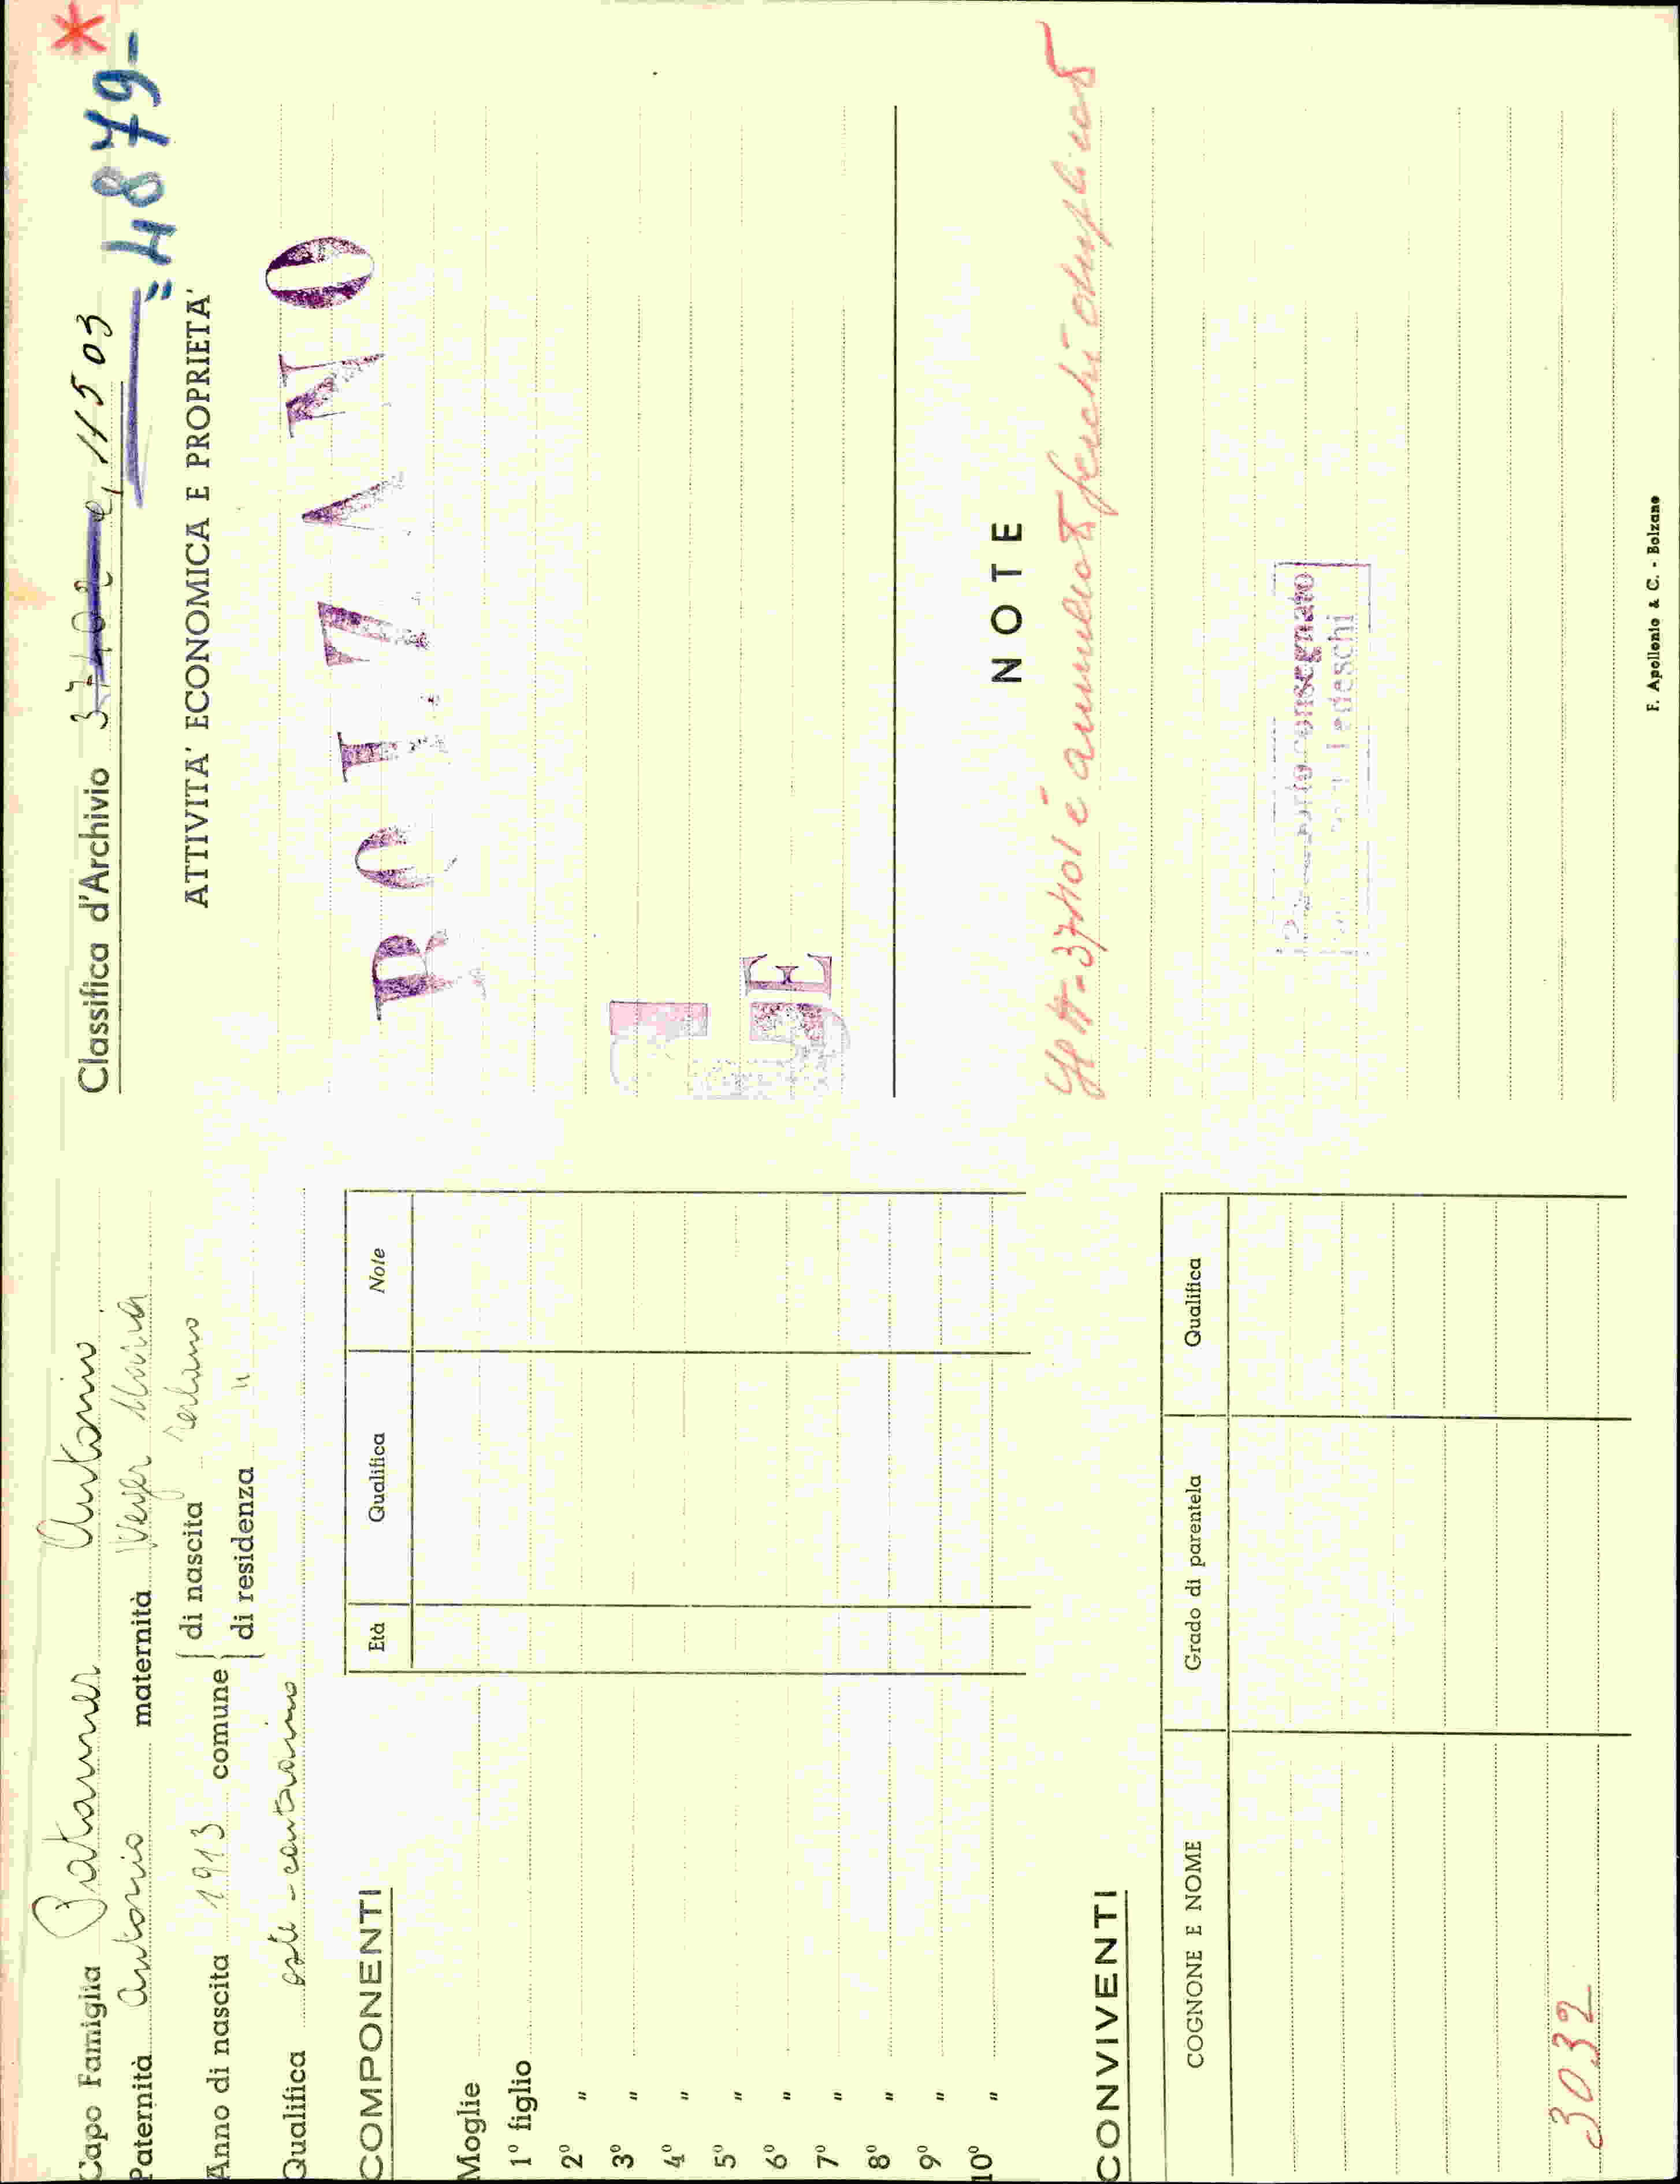 Capo Famiglia Patauner Antonio
Paternità Antonio maternità Weger Maria
Anno di nascita 1913 comune { di nascita Terlano
di residenza "
Qualifica oste - contadino
COMPONENTI
Età Qualifica Note
Moglie
1º figlio
2º "
3º "
4º "
5º "
6º "
7º "
8º "
9º "
10º "
CONVIVENTI
COGNONE E NOME Grado di parentela Qualifica
3032
Classifica d'Archivio 37401, 11503
=4879-
ATTIVITA' ECONOMICA E PROPRIETA'
BOLZANO
E
NOTE
37401 è annullato perchè duplicato
consegnato
Tedeschi
F. Apollonio & C. - Bolzano